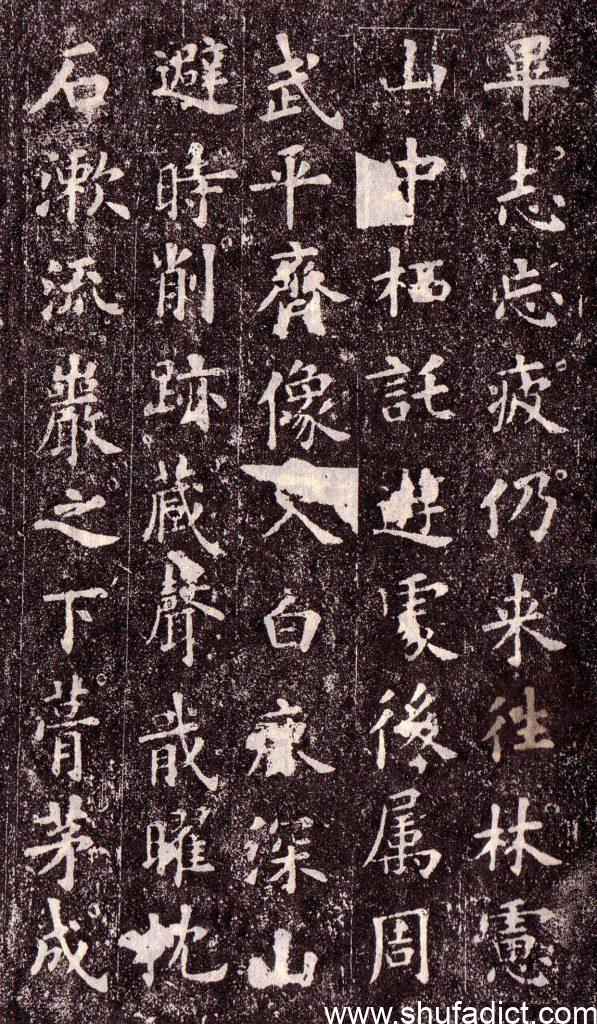 畢志忘疲仍来往林慮
山中栖託遊處後属周
武平齊像入白鹿深山
避時削跡蔵聲戢曜枕
石漱流巖之下葺茅成
www.shufadict.com